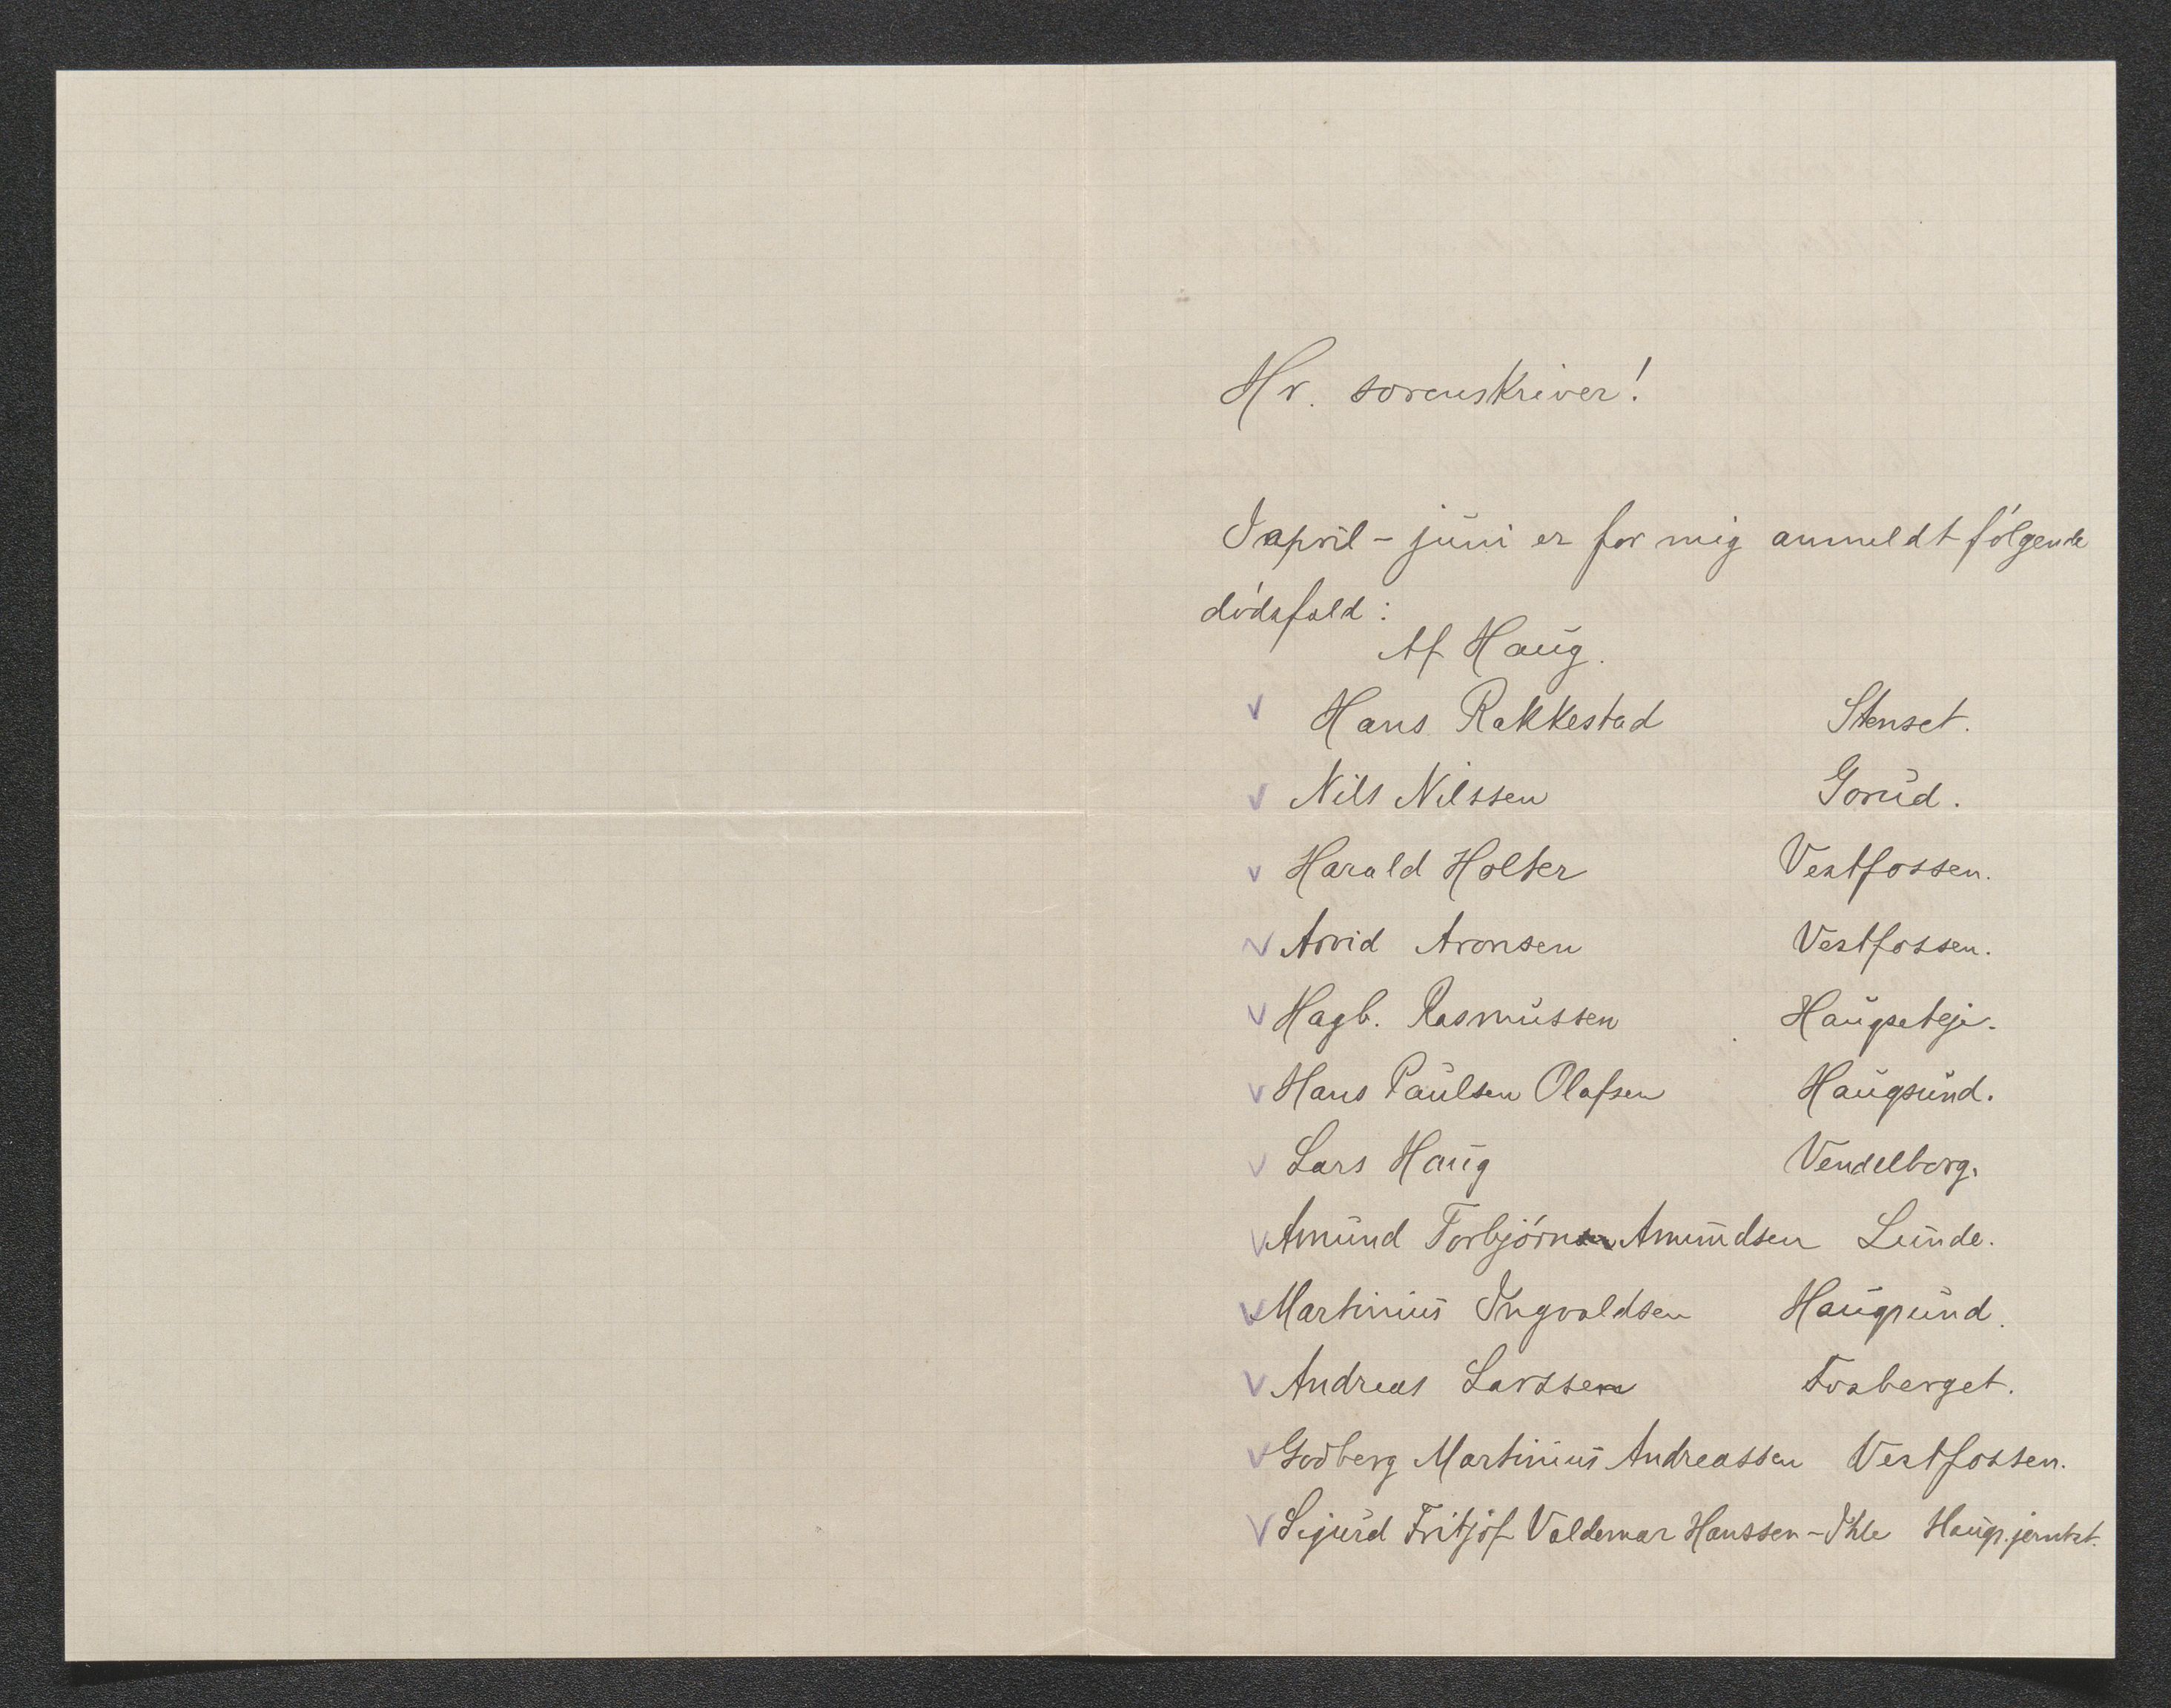 Hr. sorenskriver!
I april - juni er for mig anmeldt følgende
dødsfald:
Af Haug.
V Hans Rakkestad Stenset.
V Nils Nilssen Gorud.
V Harald Holter Vestfossen.
V Arvid Aronsen Vestfossen.
V Hagb. Rasmussen Haugseteje.
V Hans Paulsen Olafsen Haugsund.
V Lars Haug Vendelborg.
V Amund Torbjørn Amundsen Lunde.
V Martinius Ingvaldsen Haugsund.
V Andreas Larssen Fosberget.
V Godberg Martinius Andreassen Vestfossen.
V Sigurd Fritjof Valdemar Hanssen-Ihle Haugs.